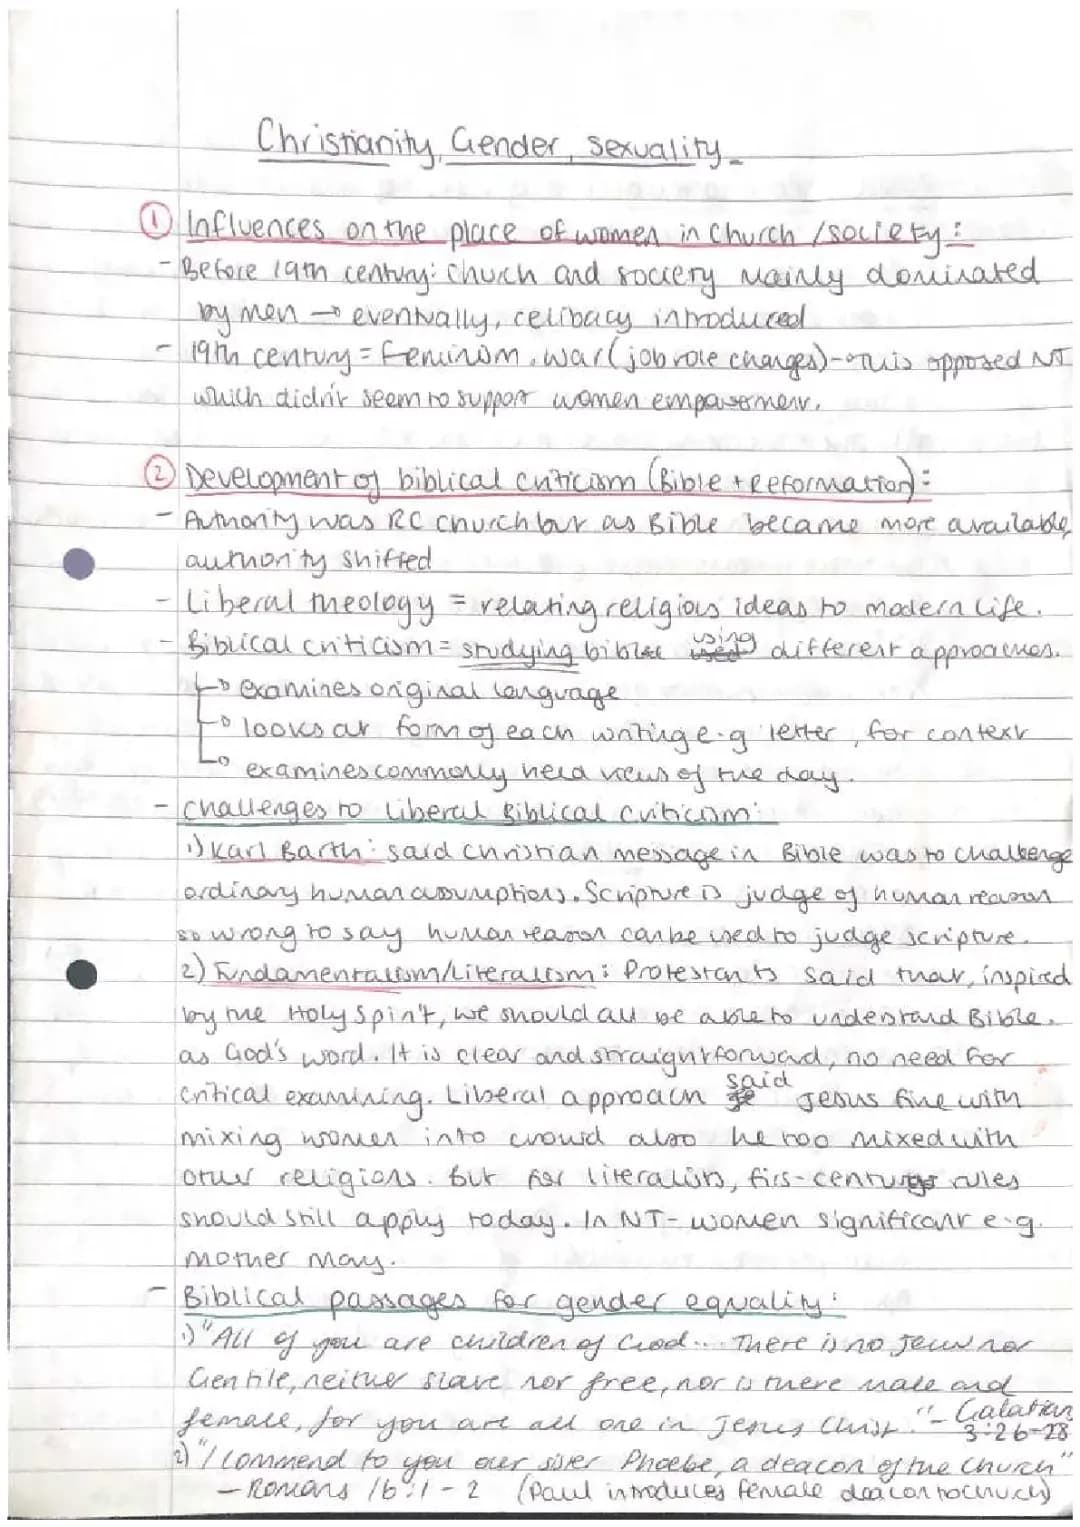 Christianity, Gender, Sexuality
① Influences on the place of women in Church / society:
- Before 19th century: Church and society mainly dominated
by men → eventually, celibacy introduced
- 19th century = feminism, war (job role changes) → this opposed NT
which didn't seem to support women empowerment.
② Development of biblical criticism (Bible + Reformation):
- Authority was RC church but as Bible became more available,
authority shifted
- Liberal theology = relating religious ideas to modern life.
- Biblical criticism = studying bible using different approaches.
→ examines original language
→ looks at form of each writing e.g letter, for context
→ examines commonly held views of the day.
- Challenges to liberal Biblical criticism:
1) Karl Barth: said Christian message in Bible was to challenge
ordinary human assumptions. Scripture is judge of human reason
so wrong to say human reason can be used to judge scripture.
2) Fundamentalism/Literalism: Protestants said that, inspired
by the Holy Spirit, we should all be able to understand Bible.
as God's word. It is clear and straightforward, no need for
critical examining. Liberal approach said Jesus fine with
mixing women into crowd also he too mixed with
other religions. But for literalists, firs-century rules
should still apply today. In NT - women significant e.g.
mother Mary.
- Biblical passages for gender equality:
1) "All of you are children of God... There is no Jew nor
Gentile, neither slave nor free, nor is there male and
female, for you are all one in Jesus Christ." - Galatians
3:26-28
2) "I commend to you our sister Phoebe, a deacon of the Church"
- Romans 16:1-2 (Paul introduces female deacon to church)